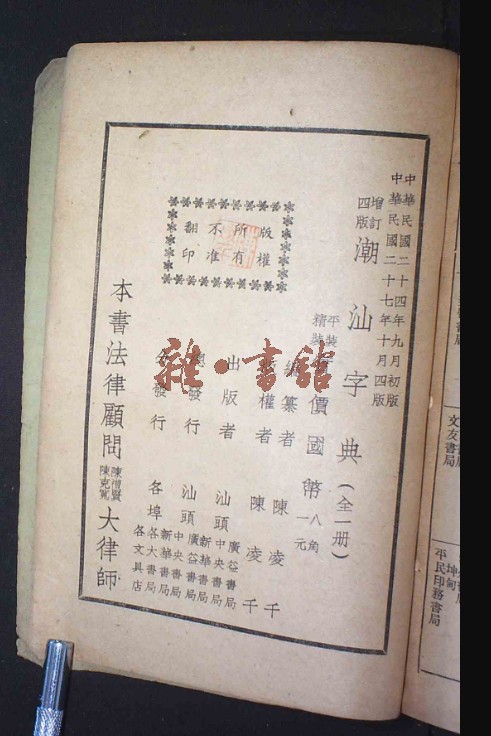 中華民國二十四年九月初版
中華民國二十七年十月四版
增訂
四版
潮汕字典（全一册）
平裝
精裝
價國幣
八角
一元
編纂者 陳凌千
權者 陳凌千
出版者 汕頭
廣益書局
中央書局
新華書局
發行 汕頭
廣益書局
中央書局
新華書局
發行 各埠
各大書局
各文具店
本書法律顧問
陳克寬
大律師
版權
所有
不准
翻印
雅·書館
文友書局
坤甸
平民印務書局